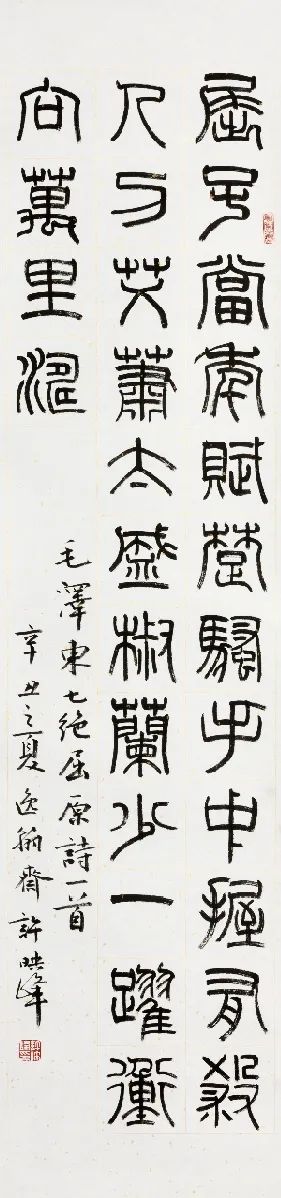 屈子當年賦楚騷手中握有殺
人刀艾蕭太盛椒蘭少一躍衝
向萬里濤
毛澤東七絕屈原詩一首
辛丑之夏逸齋許映峰